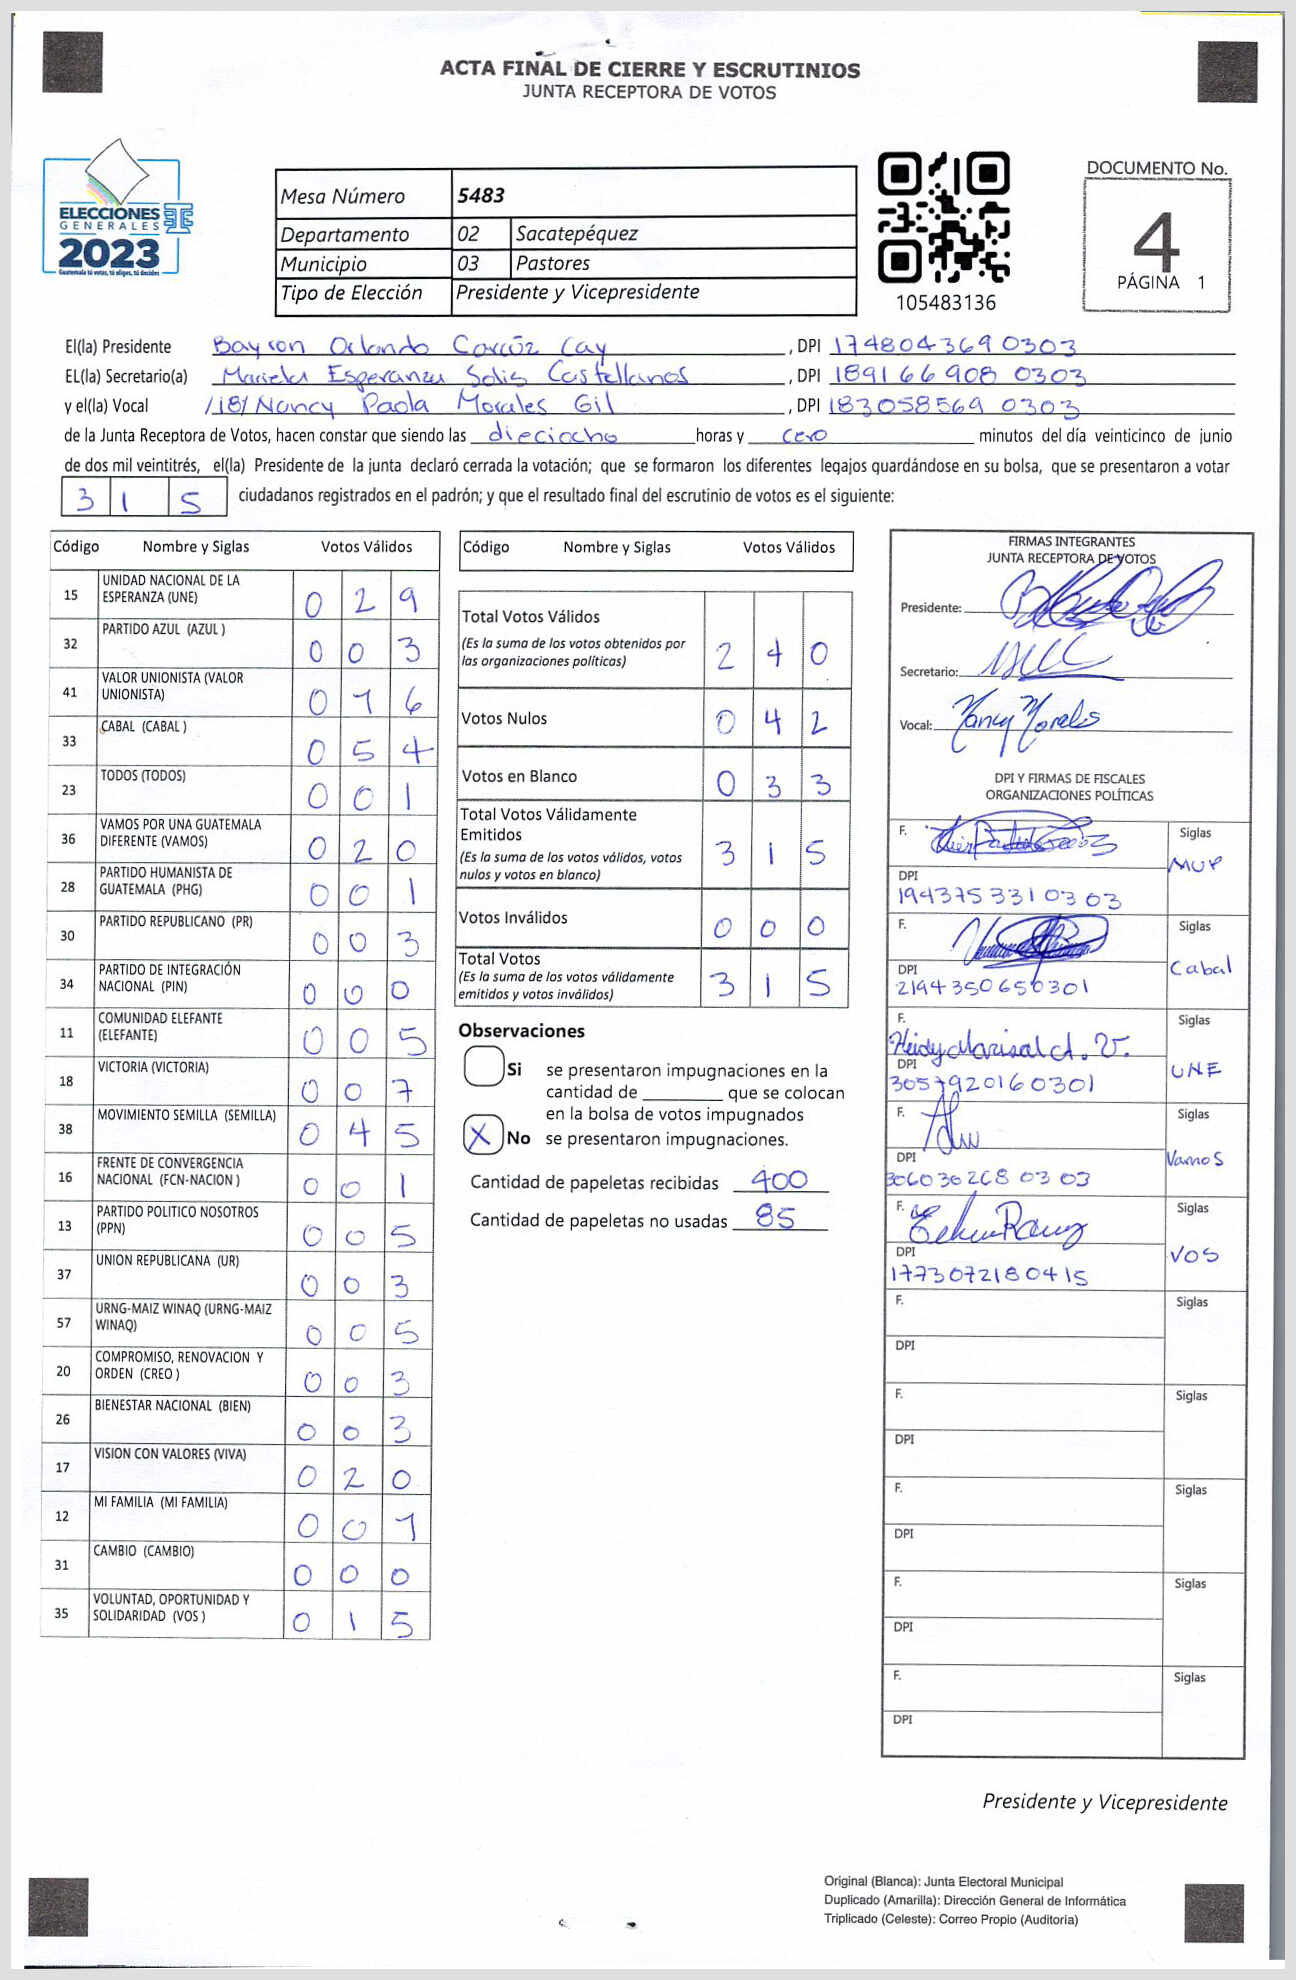 ACTA FINAL DE CIERRE Y ESCRUTINIOS
JUNTA RECEPTORA DE VOTOS
ELECCIONES
GENERALES
2023
Guatemala tú votas, tú eliges, tú decides
Mesa Número 5483
Departamento 02 Sacatepéquez
Municipio 03 Pastores
Tipo de Elección Presidente y Vicepresidente
105483136
DOCUMENTO No.
4
PÁGINA 1
El(la) Presidente Bayron Orlando Cay, DPI 174804369 0303
EL(la) Secretario(a) Mariela Esperanza Solis Castellanos, DPI 189166908 0303
y el(la) Vocal Nancy Paola Morales Gil, DPI 183058569 0303
de la Junta Receptora de Votos, hacen constar que siendo las dieciocho horas y cero minutos del día veinticinco de junio
de dos mil veintitrés, el(la) Presidente de la junta declaró cerrada la votación; que se formaron los diferentes legajos guardándose en su bolsa, que se presentaron a votar
3 1 5 ciudadanos registrados en el padrón; y que el resultado final del escrutinio de votos es el siguiente:
Código Nombre y Siglas Votos Válidos
15 UNIDAD NACIONAL DE LA ESPERANZA (UNE) 0 2 9
32 PARTIDO AZUL (AZUL ) 0 0 3
41 VALOR UNIONISTA (VALOR UNIONISTA) 0 1 6
33 CABAL (CABAL ) 0 5 4
23 TODOS (TODOS) 0 0 1
36 VAMOS POR UNA GUATEMALA DIFERENTE (VAMOS) 0 2 0
28 PARTIDO HUMANISTA DE GUATEMALA (PHG) 0 0 1
30 PARTIDO REPUBLICANO (PR) 0 0 3
34 PARTIDO DE INTEGRACIÓN NACIONAL (PIN) 0 0 0
11 COMUNIDAD ELEFANTE (ELEFANTE) 0 0 5
18 VICTORIA (VICTORIA) 0 0 7
38 MOVIMIENTO SEMILLA (SEMILLA) 0 4 5
16 FRENTE DE CONVERGENCIA NACIONAL (FCN-NACION ) 0 0 1
13 PARTIDO POLITICO NOSOTROS (PPN) 0 0 5
37 UNION REPUBLICANA (UR) 0 0 3
57 URNG-MAIZ WINAQ (URNG-MAIZ WINAQ) 0 0 5
20 COMPROMISO, RENOVACION Y ORDEN (CREO ) 0 0 3
26 BIENESTAR NACIONAL (BIEN) 0 0 3
17 VISION CON VALORES (VIVA) 0 2 0
12 MI FAMILIA (MI FAMILIA) 0 0 1
31 CAMBIO (CAMBIO) 0 0 0
35 VOLUNTAD, OPORTUNIDAD Y SOLIDARIDAD (VOS ) 0 1 5
Código Nombre y Siglas Votos Válidos
Total Votos Válidos
(Es la suma de los votos obtenidos por
las organizaciones políticas) 2 4 0
Votos Nulos 0 4 2
Votos en Blanco 0 3 3
Total Votos Válidamente
Emitidos
(Es la suma de los votos válidos, votos
nulos y votos en blanco) 3 1 5
Votos Inválidos 0 0 0
Total Votos
(Es la suma de los votos válidamente
emitidos y votos inválidos) 3 1 5
Observaciones
Si se presentaron impugnaciones en la
cantidad de ________ que se colocan
en la bolsa de votos impugnados
X No se presentaron impugnaciones.
Cantidad de papeletas recibidas 400
Cantidad de papeletas no usadas 85
FIRMAS INTEGRANTES
JUNTA RECEPTORA DE VOTOS
Presidente:
Secretario:
Vocal: Nancy Morales
DPI Y FIRMAS DE FISCALES
ORGANIZACIONES POLÍTICAS
F. Siglas
MLP
DPI
194375331 03 03
F. Siglas
Cabal
DPI
2194350650301
F. Heidy Marisol A. V. Siglas
UNE
DPI
3057920160301
F. Siglas
Vamos
DPI
306030268 03 03
F. Siglas
VOS
DPI
1773072180415
F. Siglas
DPI
F. Siglas
DPI
F. Siglas
DPI
F. Siglas
DPI
F. Siglas
DPI
Presidente y Vicepresidente
Original (Blanca): Junta Electoral Municipal
Duplicado (Amarilla): Dirección General de Informática
Triplicado (Celeste): Correo Propio (Auditoria)